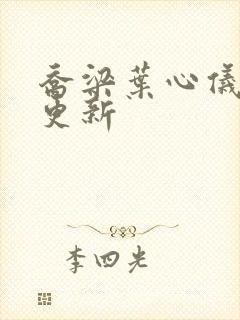 乔梁葉心儀
更新
李四光